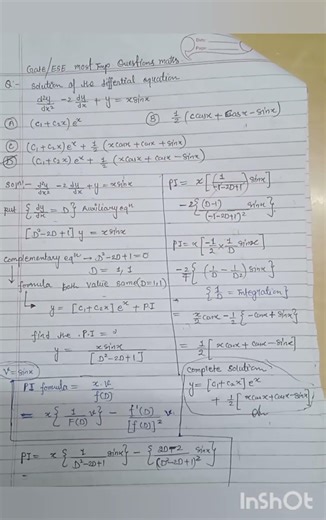 Gate/ESE most Imp Questions maths
Q- Solution of the differential equation
d²y/dx² -2 dy/dx + y = x sinx
(A) (C1 + C2x) e^x
(B) 1/2 (x cosx + cosx - sinx)
(C) (C1 + C2x) e^x + 1/2 (x cosx + cosx + sinx)
(D) (C1 + C2x) e^x + 1/2 (x cosx + cosx - sinx)
d²y/dx² -2 dy/dx + y = x sinx
put {dy/dx = D} Auxiliary eqn
[D²-2D+1] y = x sinx
Complementary eqn → D²-2D+1=0
D = 1, 1
formula value same (D=1,1)
→ y = [C1 + C2x] e^x + PI
find the P.I = ?
y = x sinx / [D²-2D+1]
V = sinx
PI formula = x.v / f(D)
= x {1/F(D) v} - f'(D)/[f(D)]² v
PI = x {1/(D²-2D+1) sinx} - {(2D-2)/(D²-2D+1)² sinx}
PI = x [(1/(-1-2D+1)) sinx]
-2 {(D-1) sinx/(-1-2D+1)²}
PI = x [-1/2 x 1/D sinx]
-2/4 {(1/D - 1/D²) sinx}
{1/D = Integration}
= x/2 cosx - 1/2 {-cosx + sinx}
= 1/2 [x cosx + cosx - sinx]
Complete solution
y = [C1 + C2x] e^x
+ 1/2 [x cosx + cosx - sinx]
InShOt